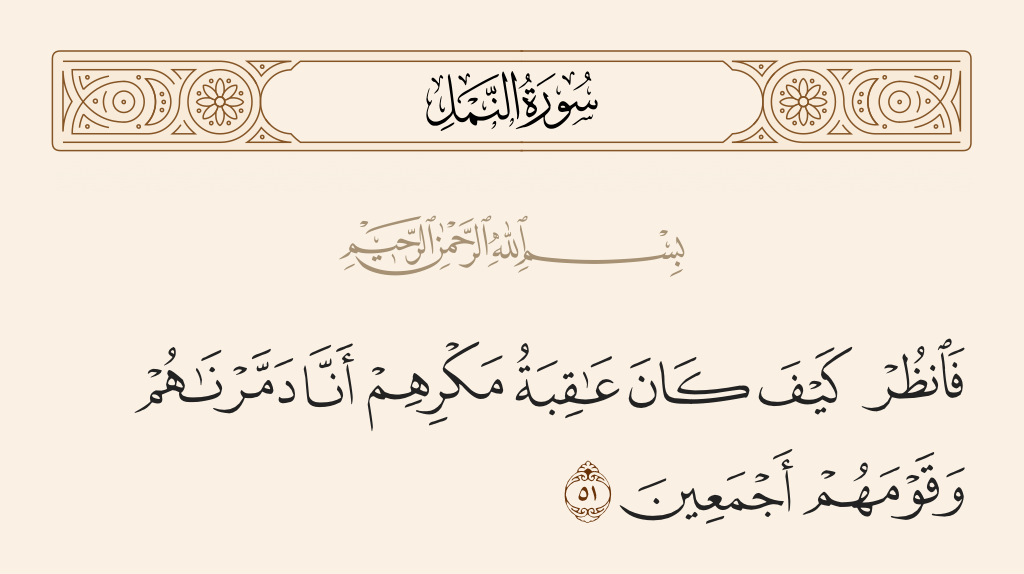 سُورَةُ النَّمْلِ
بِسْمِ ٱللَّهِ ٱلرَّحْمَٰنِ ٱلرَّحِيمِ
فَٱنظُرْ كَيْفَ كَانَ عَٰقِبَةُ مَكْرِهِمْ أَنَّا دَمَّرْنَٰهُمْ
وَقَوْمَهُمْ أَجْمَعِينَ ٥١